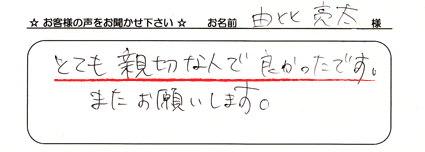 ☆ お客様の声をお聞かせ下さい ☆ お名前 由比 亮太 様
とても親切な人で良かったです。
またお願いします。